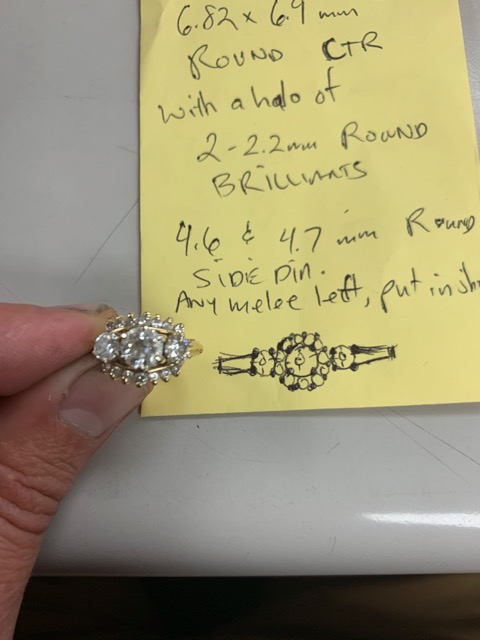 6.82 x 6.9 mm
ROUND CTR
with a halo of
2-2.2mm ROUND
BRILLIANTS
4.6 & 4.7 mm Round
SIDE DIA.
Any melee left, put in